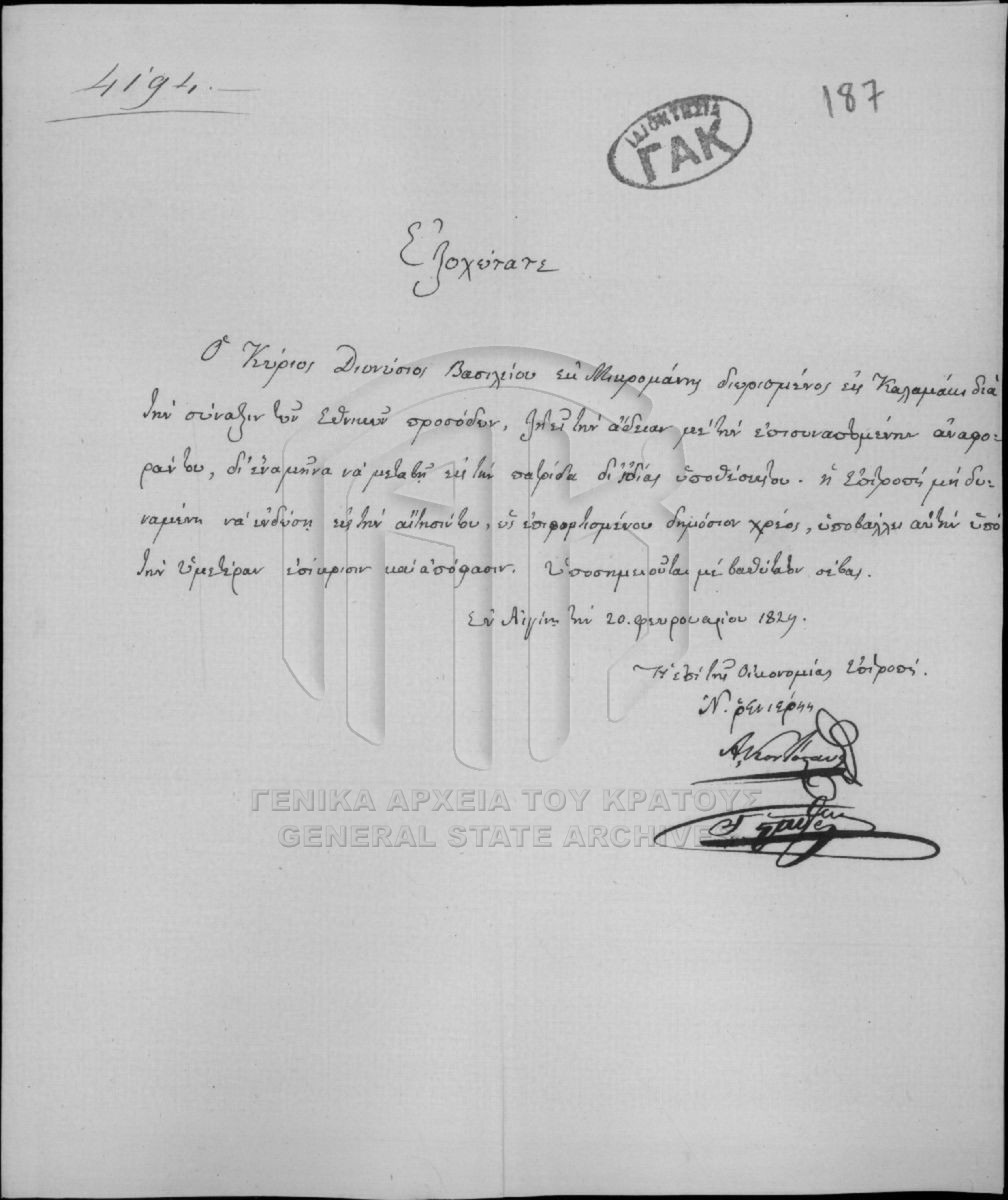 4194.
187
ΙΔΙΟΚΤΗΣΙΑ
ΓΑΚ
Ἐξοχώτατε
Ὁ Κύριος Διονύσιος Βασιλείου ἐκ Μικρομάνης διωρισμένος εἰς Καλαμάκι διὰ
τὴν σύναξιν τῶν ἐθνικῶν προσόδων, ζητεῖ τὴν ἄδειαν μὲ τὴν ἐπισυναπτομένην ἀναφο-
ράν του, δι' ἕνα μῆνα νὰ μεταβῇ εἰς τὴν πατρίδα δι' ἰδίας ὑποθέσεις του. ἡ Ἐπιτροπὴ μὴ δυ-
ναμένη νὰ ἐνδώσῃ εἰς τὴν αἴτησίν του, ὡς ἐπιφορτισμένου δημόσιον χρέος, ὑποβάλλει αὐτὴν ὑπὸ
τὴν ὑμετέραν ἐπίκρισιν καὶ ἀπόφασιν. Ὑποσημειοῦται μὲ βαθύτατον σέβας.
Ἐν Αἰγίνῃ τὴν 20. φευρουαρίου 1829.
Ἡ ἐπὶ τῆς Οἰκονομίας Ἐπιτροπή.
Ν. ῥενιέρης
Α. Κοντόσταυλος
ΓΕΝΙΚΑ ΑΡΧΕΙΑ ΤΟΥ ΚΡΑΤΟΥΣ
GENERAL STATE ARCHIVES